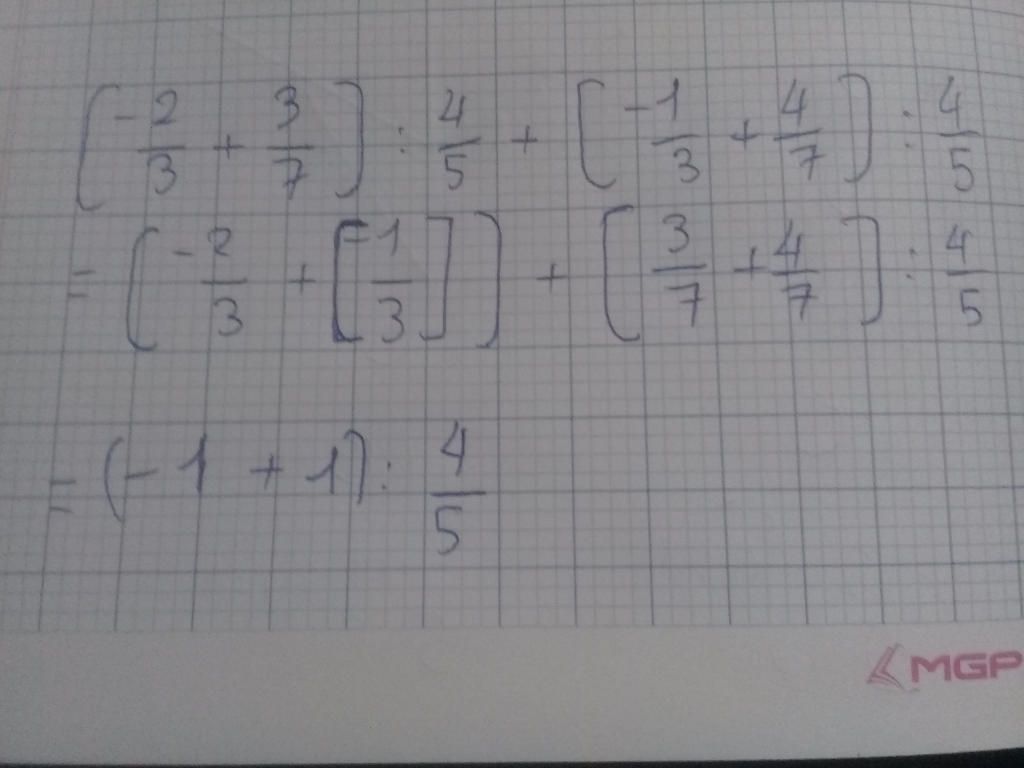 (-2/3 + 3/7) : 4/5 + (-1/3 + 4/7) : 4/5
= (-2/3 + [-1/3]) + (3/7 + 4/7) : 4/5
= (-1 + 1) : 4/5
MGP